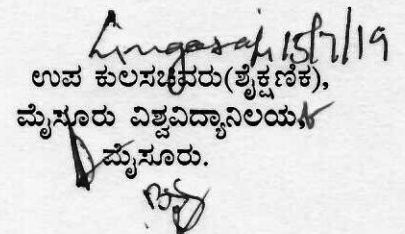 Lingaraj 15/7/19
ಉಪ ಕುಲಸಚಿವರು(ಶೈಕ್ಷಣಿಕ),
ಮೈಸೂರು ವಿಶ್ವವಿದ್ಯಾನಿಲಯ,
ಮೈಸೂರು.